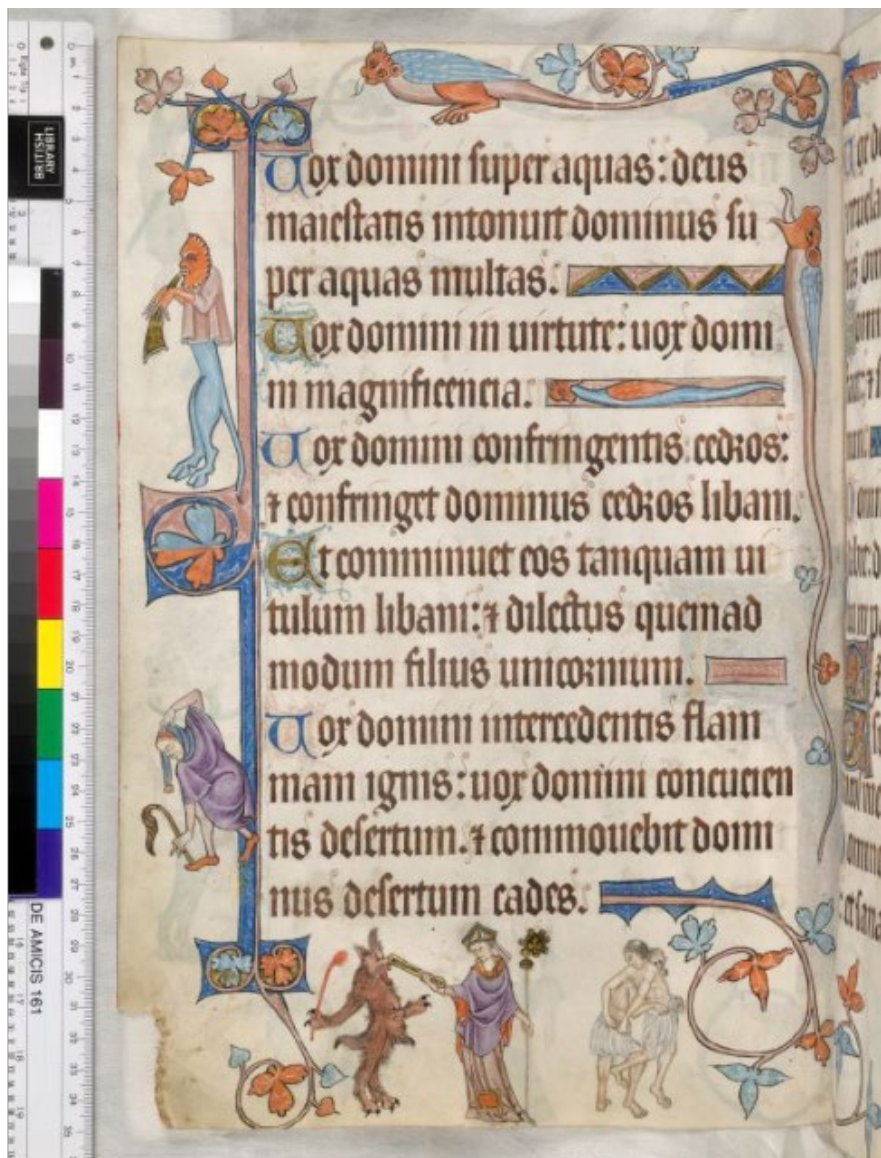 Uox domini super aquas: deus
maiestatis intonuit dominus su
per aquas multas.
Uox domini in uirtute: uox domi
ni magnificencia.
Uox domini confringentis cedros:
⁊ confringet dominus cedros libani.
Et comminuet eos tanquam ui
tulum libani: ⁊ dilectus quemad
modum filius unicornium.
Uox domini intercedentis flam
mam ignis: uox domini concucien
tis desertum. ⁊ commouebit domi
nus desertum cades.
BRITISH
LIBRARY
DE AMICIS 161